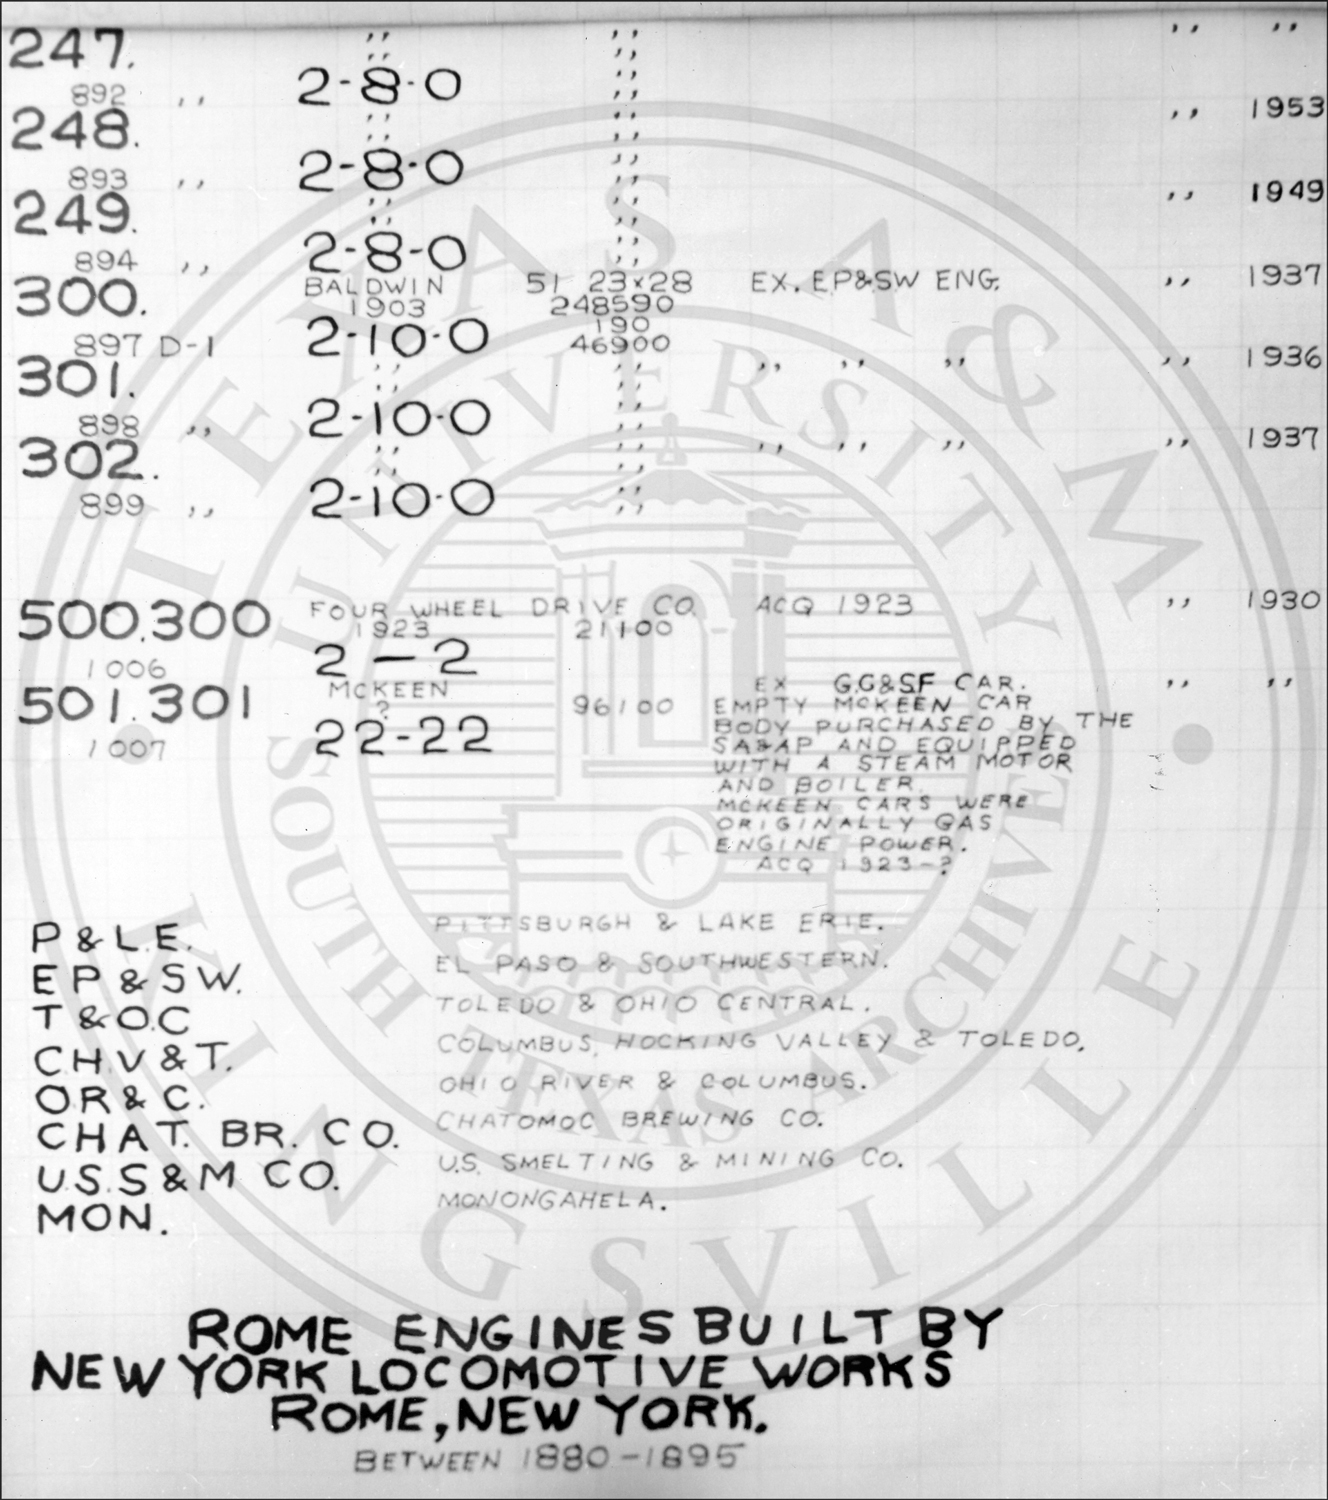 247. ,, ,, ,, ,,
,, ,,
892 ,, 2-8-0 ,,
248. ,, ,, ,, 1953
893 ,, 2-8-0 ,,
249. ,, ,, ,, 1949
894 ,, 2-8-0 ,,
300. BALDWIN 51 23x28 EX. EP&SW ENG. ,, 1937
1903 248590
190
897 D-1 2-10-0 46900
301. ,, ,, ,, ,, ,, ,, 1936
898 ,, 2-10-0 ,,
302. ,, ,, ,, ,, ,, ,, 1937
899 ,, 2-10-0 ,,
500.300 FOUR WHEEL DRIVE CO. ACQ 1923 ,, 1930
1923 21100
1006 2-2
501.301 MCKEEN EX G.G&SF CAR. ,, ,,
? 96100 EMPTY MCKEEN CAR
22-22 BODY PURCHASED BY THE
1007 SA&AP AND EQUIPPED
WITH A STEAM MOTOR
AND BOILER.
MCKEEN CARS WERE
ORIGINALLY GAS
ENGINE POWER.
ACQ 1923-?
P & L.E. PITTSBURGH & LAKE ERIE.
EP & SW. EL PASO & SOUTHWESTERN.
T & O.C TOLEDO & OHIO CENTRAL.
C.H.V & T. COLUMBUS, HOCKING VALLEY & TOLEDO.
O.R & C. OHIO RIVER & COLUMBUS.
CHAT. BR. CO. CHATOMOC BREWING CO.
U.S.S & M CO. U.S. SMELTING & MINING CO.
MON. MONONGAHELA.
ROME ENGINES BUILT BY
NEW YORK LOCOMOTIVE WORKS
ROME, NEW YORK.
BETWEEN 1880-1895
TEXAS A&M UNIVERSITY
KINGSVILLE
SOUTH TEXAS ARCHIVES